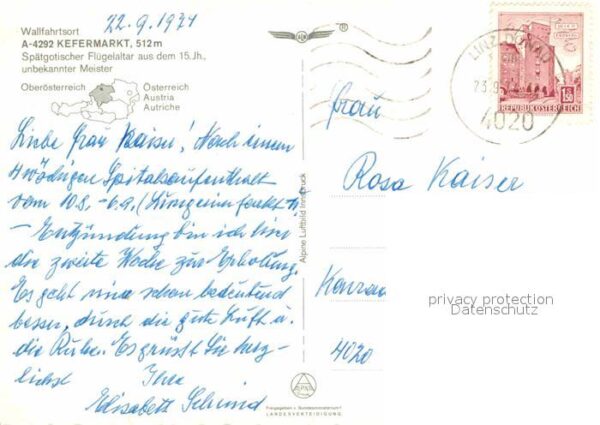 22.9.1974
Wallfahrtsort
A-4292 KEFERMARKT, 512 m
Spätgotischer Flügelaltar aus dem 15. Jh.,
unbekannter Meister
Oberösterreich
Österreich
Austria
Autriche
Liebe Frau Kaiser! Nach einem
4 wöchigen Spitalsaufenthalt
vom 10.8. - 6.9. (Lungeninfarkt u.
- Entzündung bin ich hier
die zweite Woche zur Erholung.
Es geht mir schon bedeutend
besser, durch die gute Luft u.
die Ruhe. Es grüsst Sie herz-
lichst Ihre
Elisabeth Schmid
Alpine Luftbild Innsbruck
Freigegeben v. Bundesministerium f.
LANDESVERTEIDIGUNG
LINZ DONAU
4020
1.50
REPUBLIK ÖSTERREICH
Frau
Rosa Kaiser
4020
privacy protection
Datenschutz